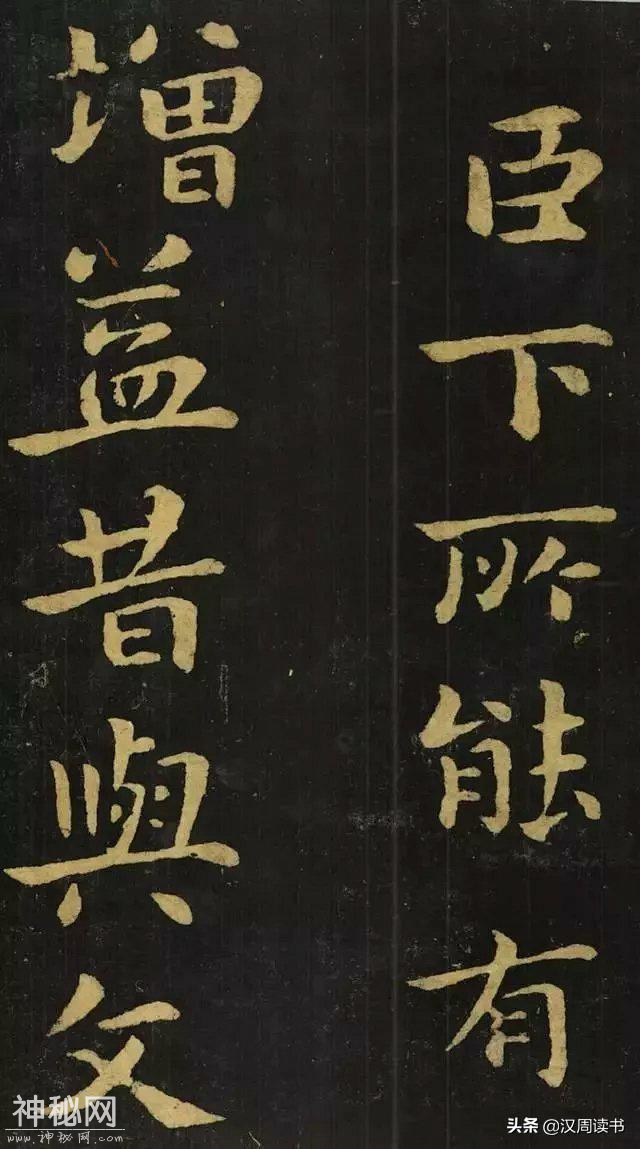 臣下所能有
增益昔與文
神秘网
www.神秘网.com
头条@汉周读书